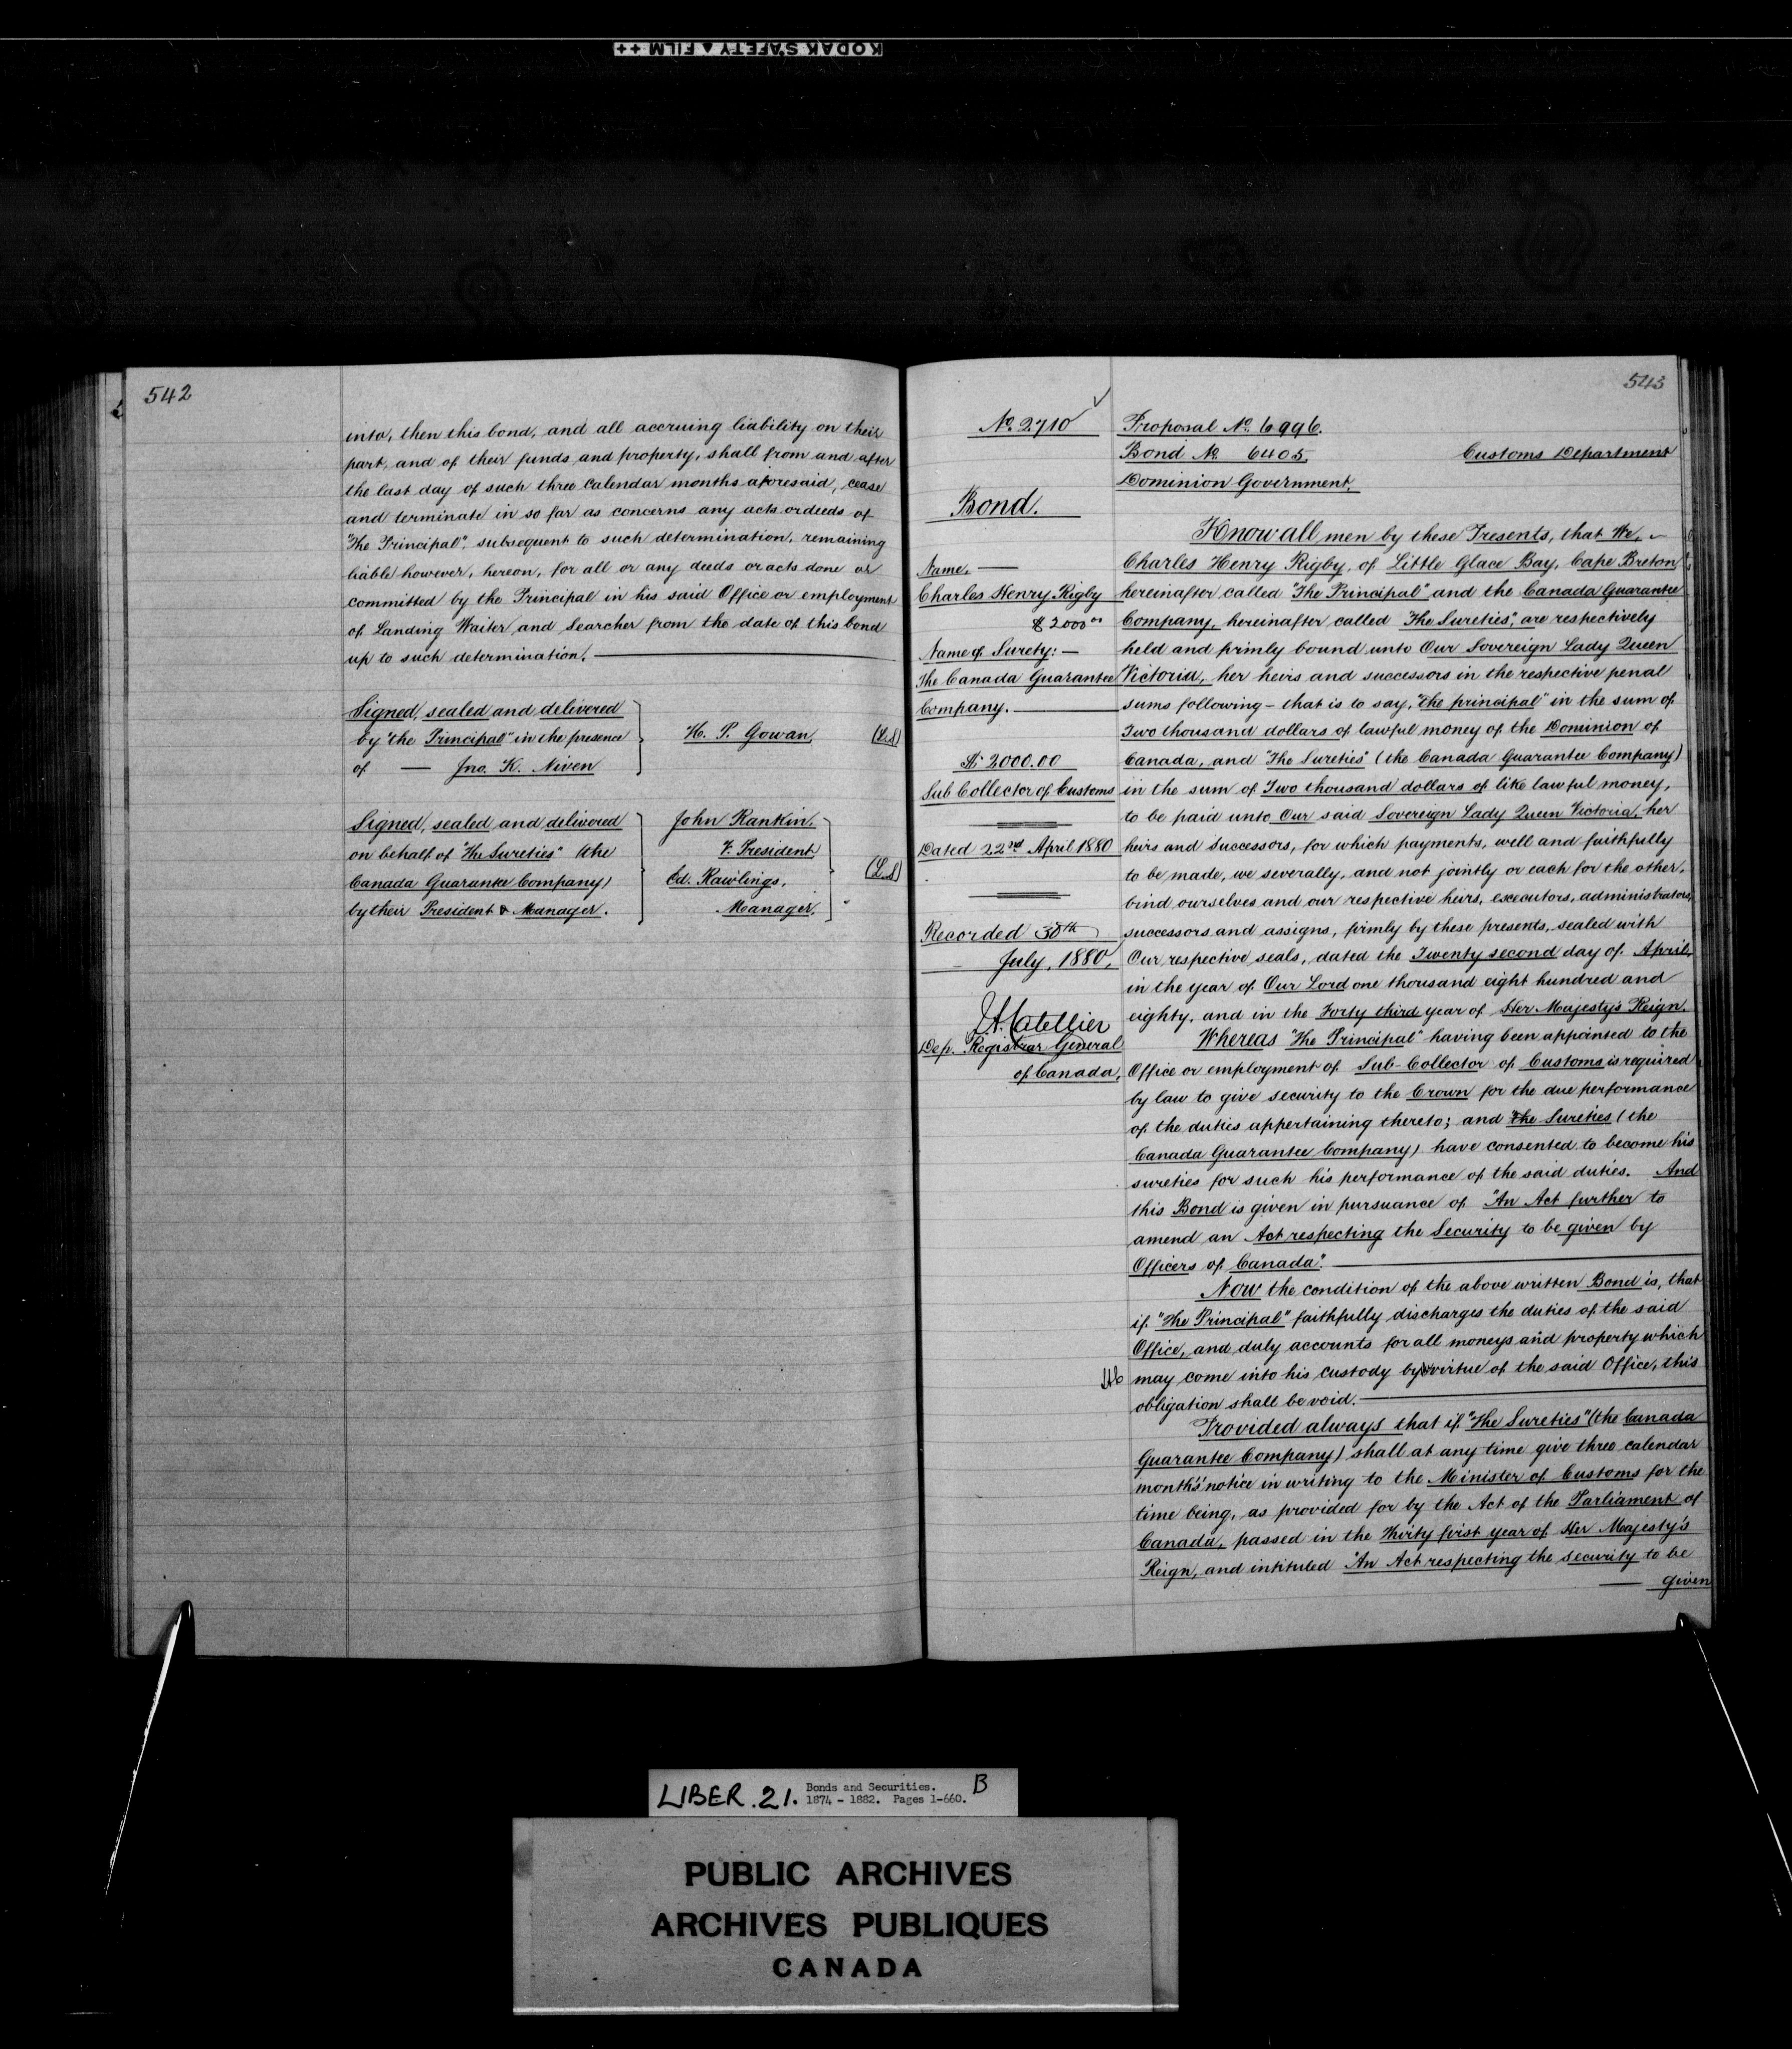 KODAK SAFETY ▲ FILM ++
542
into, then this bond, and all accruing liability on their
part, and of their funds and property, shall from and after
the last day of such three Calendar months aforesaid, cease
and terminate in so far as concerns any acts or deeds of
"The Principal", subsequent to such determination, remaining
liable however, hereon, for all or any deeds or acts done or
committed by the Principal in his said Office or employment
of Landing Waiter and Searcher from the date of this bond
up to such determination.
Signed, sealed and delivered
by "the Principal" in the presence
of — Jno. K. Niven
H. P. Gowan
(L.S)
Signed, sealed and delivered
on behalf of "The Sureties" (the
Canada Guarantee Company)
by their President & Manager.
John Rankin.
V. President
Ed. Rawlings,
Manager,
(L.S)
543
No. 2710
Bond.
Name, —
Charles Henry Rigby
$2000.00
Name of Surety: —
The Canada Guarantee
Company. —
$ 2000.00
Sub Collector of Customs
Dated 22nd April 1880
Recorded 30th
July, 1880,
J. A. Catellier
Dep. Registrar General
of Canada,
Proposal No. 6996.
Bond No 6405. Customs Department
Dominion Government.
Know all men by these Presents, that We,
Charles Henry Rigby, of Little Glace Bay, Cape Breton
hereinafter called "The Principal" and the Canada Guarantee
Company, hereinafter called "The Sureties", are respectively
held and firmly bound unto Our Sovereign Lady Queen
Victoria, her heirs and successors in the respective penal
sums following – that is to say, "The principal" in the sum of
Two thousand dollars of lawful money of the Dominion of
Canada, and "The Sureties" (the Canada Guarantee Company)
in the sum of Two thousand dollars of like lawful money,
to be paid unto Our said Sovereign Lady Queen Victoria, her
heirs and successors, for which payments, well and faithfully
to be made, we severally, and not jointly or each for the other,
bind ourselves and our respective heirs, executors, administrators,
successors and assigns, firmly by these presents, sealed with
Our respective seals, dated the Twenty second day of April,
in the year of Our Lord one thousand eight hundred and
eighty, and in the Forty third year of Her Majesty's Reign.
Whereas "The Principal" having been appointed to the
Office or employment of Sub-Collector of Customs is required
by law to give security to the Crown for the due performance
of the duties appertaining thereto; and "the Sureties (the
Canada Guarantee Company) have consented to become his
sureties for such his performance of the said duties. And
this Bond is given in pursuance of "An Act further to
amend an Act respecting the Security to be given by
Officers of Canada".
Now the condition of the above written Bond is, that
if "The Principal" faithfully discharges the duties of the said
Office, and duly accounts for all moneys and property which
may come into his custody by virtue of the said Office, this
obligation shall be void.
Provided always that if "The Sureties" (the Canada
Guarantee Company) shall at any time give three calendar
month's notice in writing to the Minister of Customs for the
time being, as provided for by the Act of the Parliament of
Canada, passed in the thirty first year of Her Majesty's
Reign, and intituled "An Act respecting the security to be
— given
LIBER. 21. Bonds and Securities. B
1874 - 1882. Pages 1-660.
PUBLIC ARCHIVES
ARCHIVES PUBLIQUES
CANADA